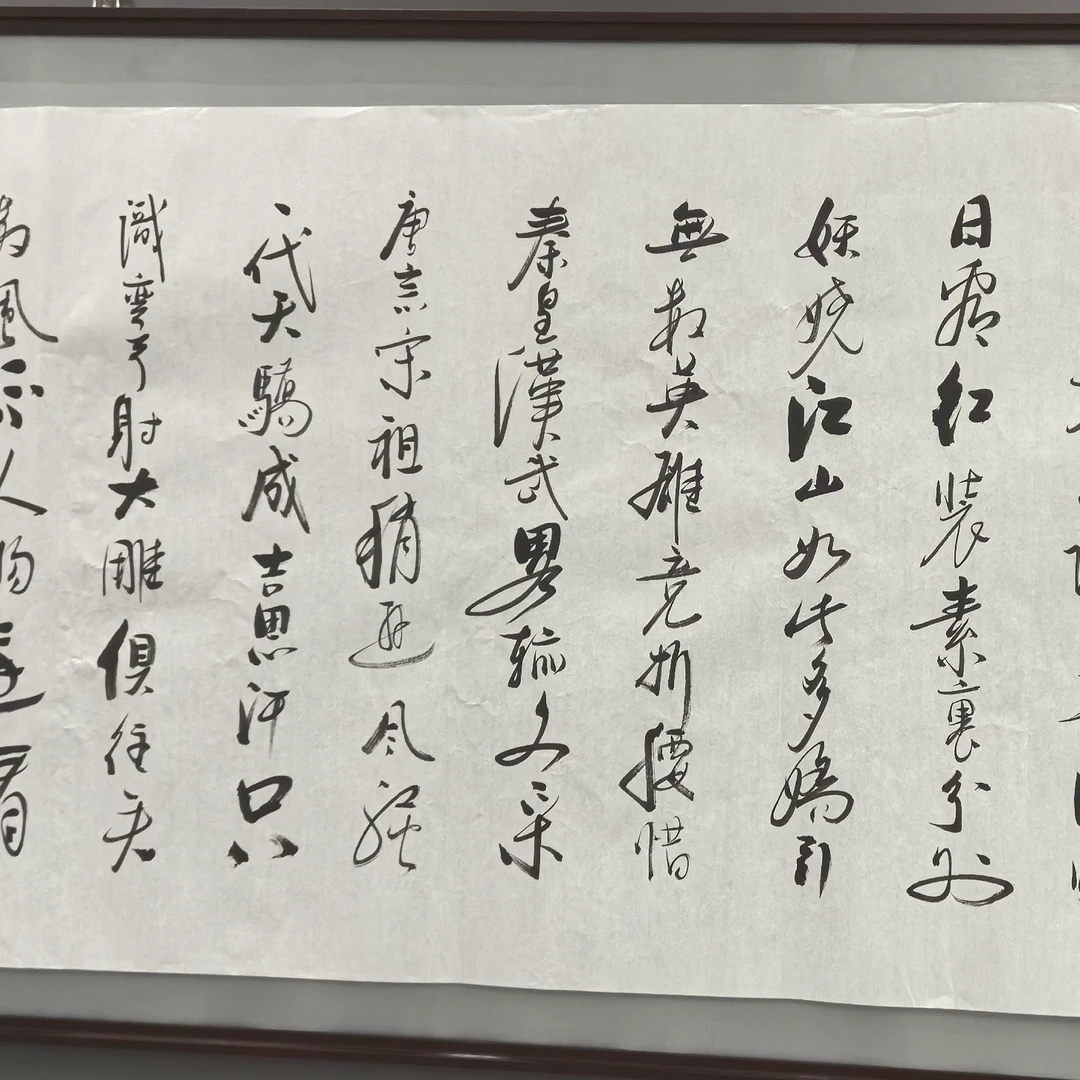 日看红裝素裹分外
妖娆江山如此多嬌引
無数英雄竞折腰惜
秦皇漢武畧輸文采
唐宗宋祖稍遜风骚
一代天驕成吉思汗只
識彎弓射大雕俱往矣
数風流人物還看